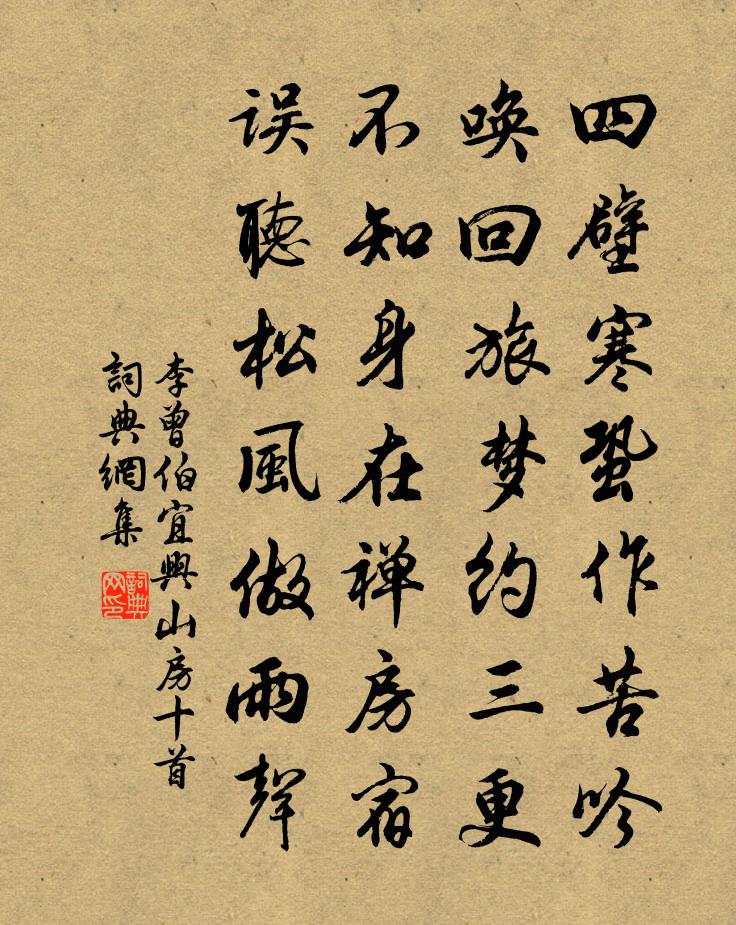 四壁寒蛩作苦吟
唤回旅梦约三更
不知身在禅房宿
误聽松風做雨聲
李曾伯宜興山房十首
詞典網集
詞典网印